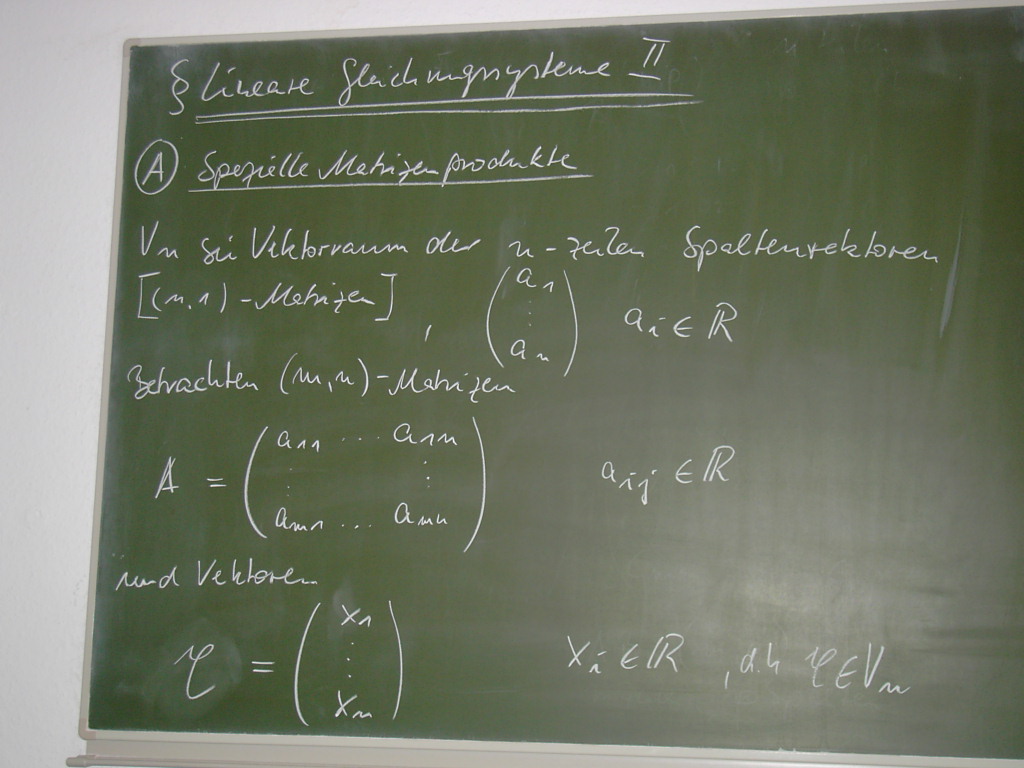 § Lineare Gleichungssysteme II
(A) Spezielle Matrizenprodukte
Vn sei Vektorraum der n-zeilen Spaltenvektoren
[(n,1)-Matrizen], (a1 ⋮ an) ai ∈ ℝ
Betrachten (m,n)-Matrizen
A = (a11 ... a1n ⋮ ⋮ am1 ... amn) aij ∈ ℝ
und Vektoren
𝔵 = (x1 ⋮ xn) xi ∈ ℝ, d.h 𝔵 ∈ Vn